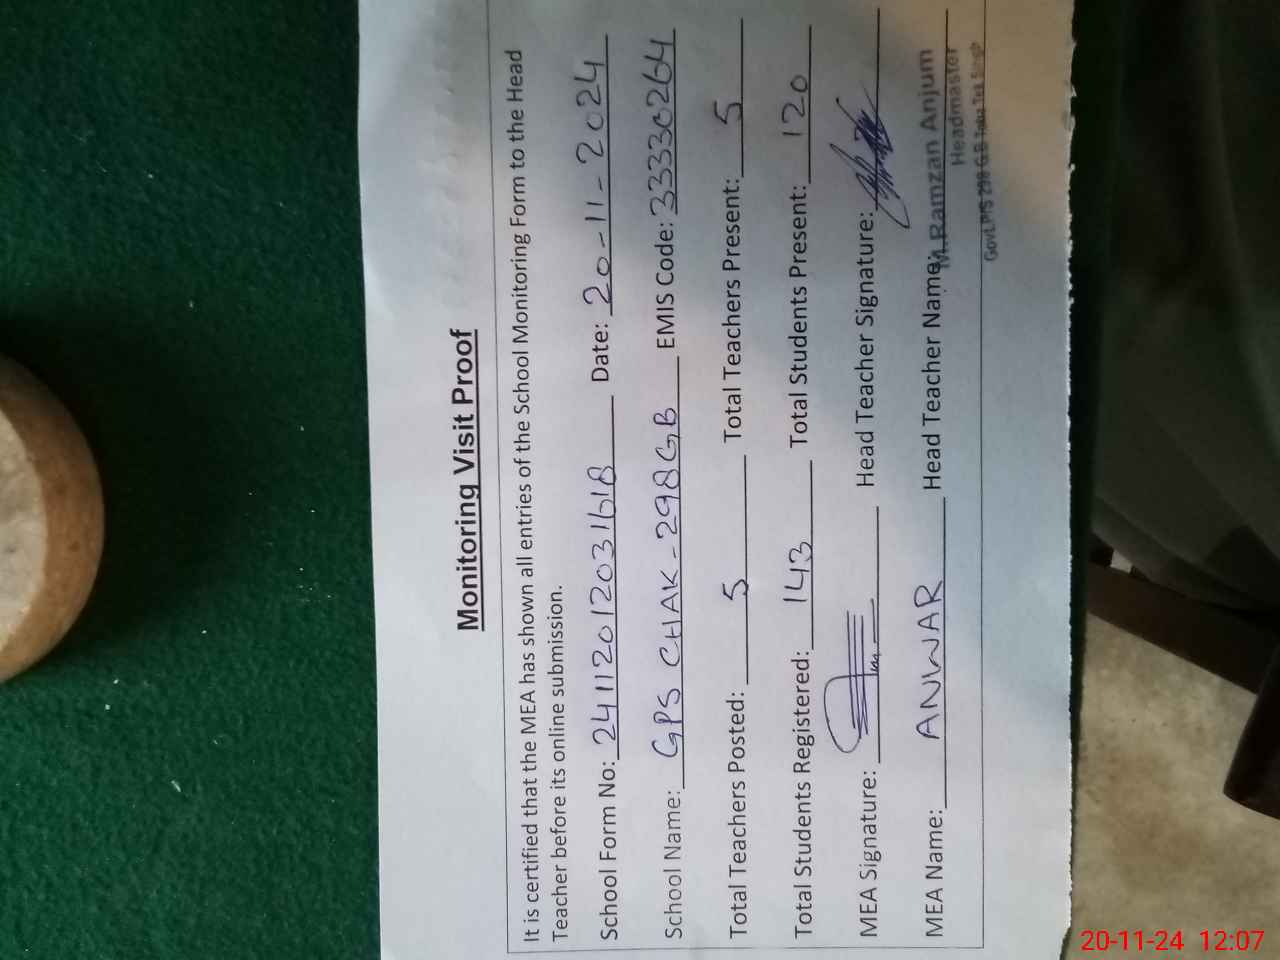 Monitoring Visit Proof
It is certified that the MEA has shown all entries of the School Monitoring Form to the Head
Teacher before its online submission.
School Form No: 2411201203161B Date: 20-11-2024
School Name: GPS CHAK-298GB EMIS Code: 33330264
Total Teachers Posted: 5 Total Teachers Present: 5
Total Students Registered: 143 Total Students Present: 120
MEA Signature: Head Teacher Signature:
MEA Name: ANWAR Head Teacher Name: M.Ramzan Anjum
Headmaster
Govt.P/S 298 G.B Toba Tek Singh
20-11-24 12:07